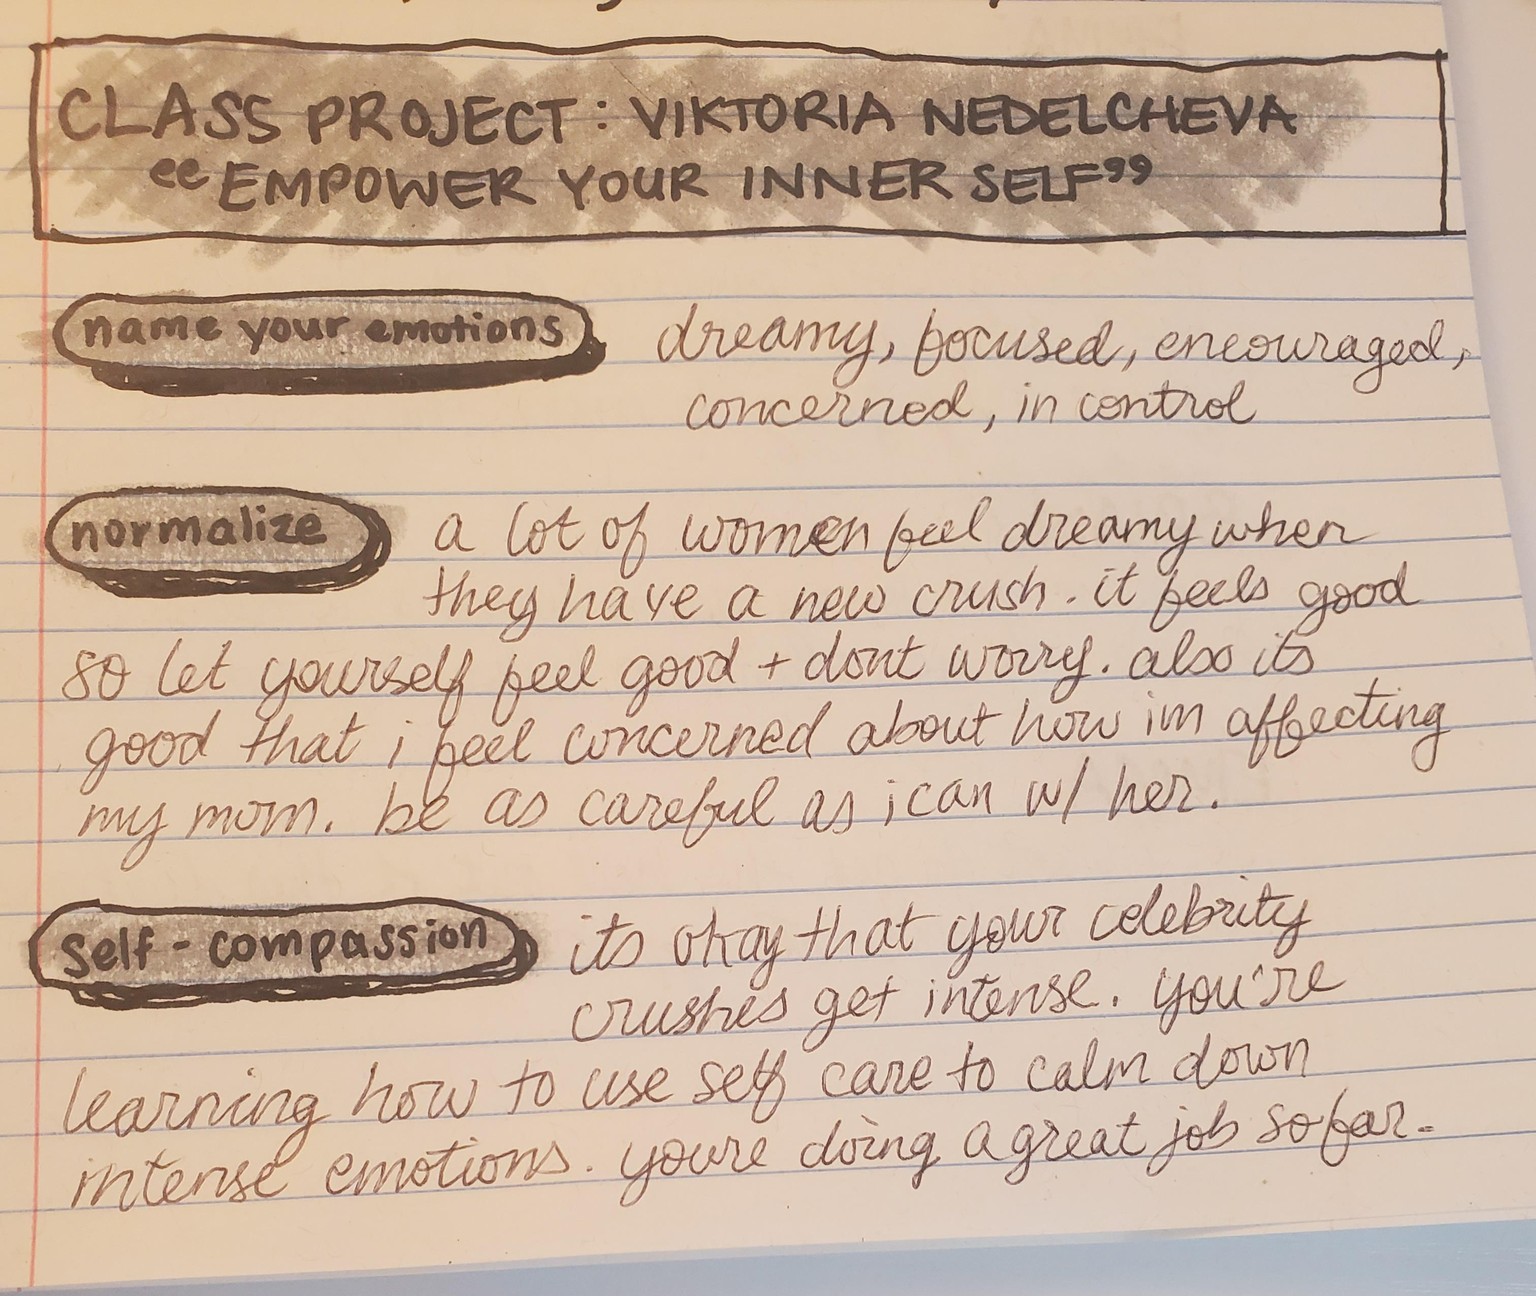 CLASS PROJECT: VIKTORIA NEDELCHEVA
"EMPOWER YOUR INNER SELF"
name your emotions dreamy, focused, encouraged,
concerned, in control
normalize a lot of women feel dreamy when
they have a new crush. it feels good
so let yourself feel good + dont worry. also its
good that i feel concerned about how im affecting
my mom. be as careful as i can w/ her.
self-compassion its okay that your celebrity
crushes get intense. you're
learning how to use self care to calm down
intense emotions. youre doing a great job so far.